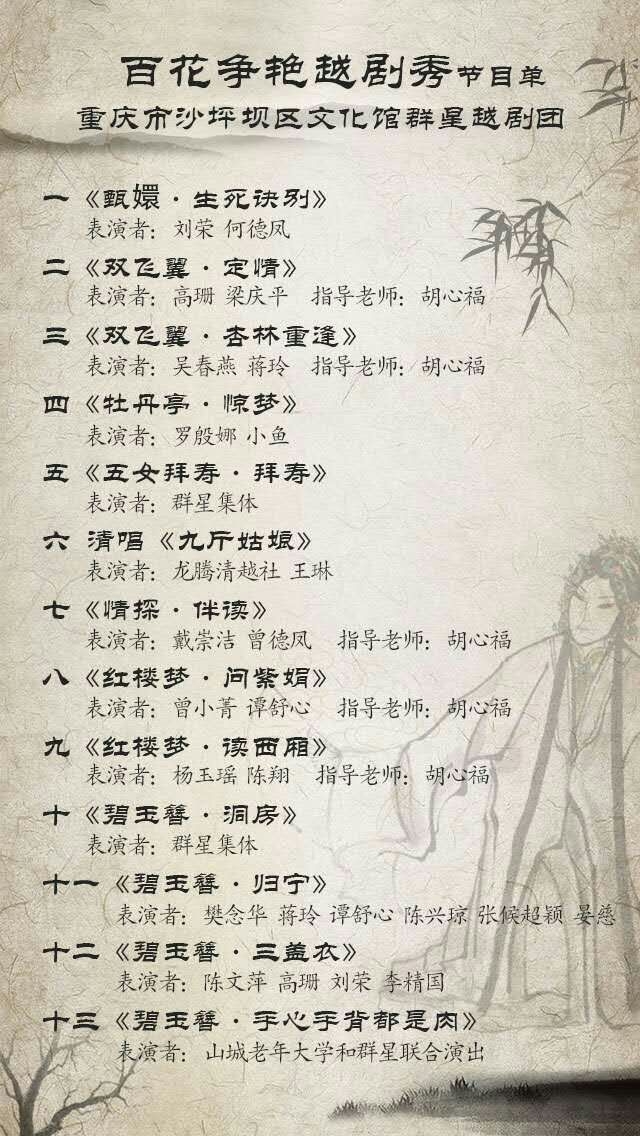 百花争艳越剧秀节目单
重庆市沙坪坝区文化馆群星越剧团
一《甄嬛·生死诀别》
表演者：刘荣 何德凤
二《双飞翼·定情》
表演者：高珊 梁庆平 指导老师：胡心福
三《双飞翼·杏林重逢》
表演者：吴春燕 蒋玲 指导老师：胡心福
四《牡丹亭·惊梦》
表演者：罗殷娜 小鱼
五《五女拜寿·拜寿》
表演者：群星集体
六 清唱《九斤姑娘》
表演者：龙腾清越社 王琳
七《情探·伴读》
表演者：戴崇洁 曾德凤 指导老师：胡心福
八《红楼梦·问紫娟》
表演者：曾小菁 谭舒心 指导老师：胡心福
九《红楼梦·读西厢》
表演者：杨玉瑶 陈翔 指导老师：胡心福
十《碧玉簪·洞房》
表演者：群星集体
十一《碧玉簪·归宁》
表演者：樊念华 蒋玲 谭舒心 陈兴琼 张候超颖 晏慈
十二《碧玉簪·三盖衣》
表演者：陈文萍 高珊 刘荣 李精国
十三《碧玉簪·手心手背都是肉》
表演者：山城老年大学和群星联合演出